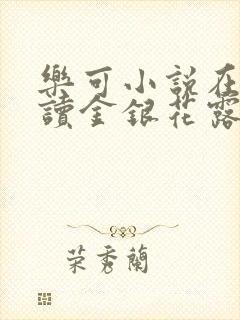 樂可小說在
讀金銀花露
荣秀蘭